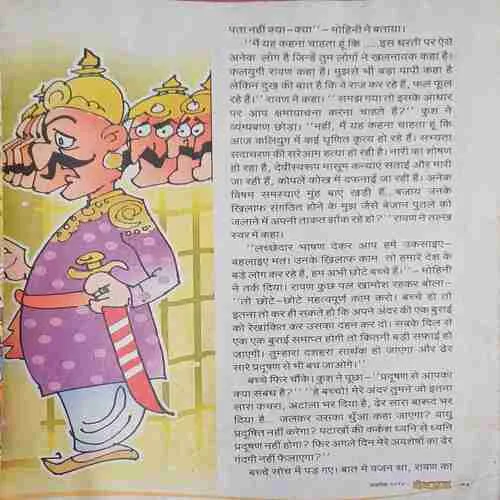 पता नहीं क्या-क्या" - मोहिनी ने बताया।
"मैं यह कहना चाहता हूं कि ....इस धरती पर ऐसे
अनेक लोग है जिन्हें तुम लोगों ने खलनायक कहा है।
कलयुगी रावण कहा है। मुझसे भी बड़ा पापी कहा है
लेकिन दुख की बात है कि वे राज कर रहे हैं, फल फूल
रहे हैं।" रावण ने कहा। "समझ गया तो इसके आधार
पर आप क्षमायाचना करना चाहते हैं?" कुश ने
व्यंग्यबाण छोड़ा। "नहीं, मैं यह कहना चाहता हूं कि
आज कलियुग में कई घृणित कृत्य हो रहे हैं। सभ्यता
सदाचरण की सरेआम हत्या हो रही है। नारी का शोषण
हो रहा है, देवीस्वरूप मासूम कन्याएं सताई और मारी
जा रही हैं, कोपलें कोख में दफनाई जा रही है। अनेक
विषम समस्याएं मुंह बाए खड़ी हैं, बजाय उनके
खिलाफ संगठित होने के मुझ जैसे बेजान पुतले को
जलाने में अपनी ताकत झोंक रहे हो?" रावण ने तल्ख
स्वर में कहा।
"लच्छेदार भाषण देकर आप हमें उकसाइए-
बहलाइए मत। उनके खिलाफ काम तो हमारे देश के
बड़े लोग कर रहे हैं, हम अभी छोटे बच्चे हैं।" - मोहिनी
ने तर्क दिया। रावण कुछ पल खामोश रहकर बोला-
"तो छोटे-छोटे महत्वपूर्ण काम करो। बच्चे हो तो
इतना तो कर ही सकते हो कि अपने अंदर की एक बुराई
को रेखांकित कर उसका दहन कर दो। सबके दिल से
एक एक बुराई समाप्त होगी तो कितनी बड़ी सफाई हो
जाएगी। तुम्हारा दशहरा सार्थक हो जाएगा और ढेर
सारे प्रदूषण से भी बच जाओगे।"
बच्चे फिर चौंके। कुश ने पूछा- "प्रदूषण से आपका
क्या संबंध है?" "हे बच्चो! मेरे अंदर तुमने जो इतना
सारा कचरा, अटाला भर दिया है, ढेर सारा बारूद भर
दिया है... जलकर उसका धुँआ कहा जाएगा? वायु
प्रदूषित नहीं करेगा? पटाखों की कर्कश ध्वनि से ध्वनि
प्रदूषण नहीं होगा? फिर अगले दिन मेरे अवशेषों का ढेर
गंदगी नहीं फैलाएगा?"
बच्चे सोच में पड़ गए। बात में वजन था, रावण का